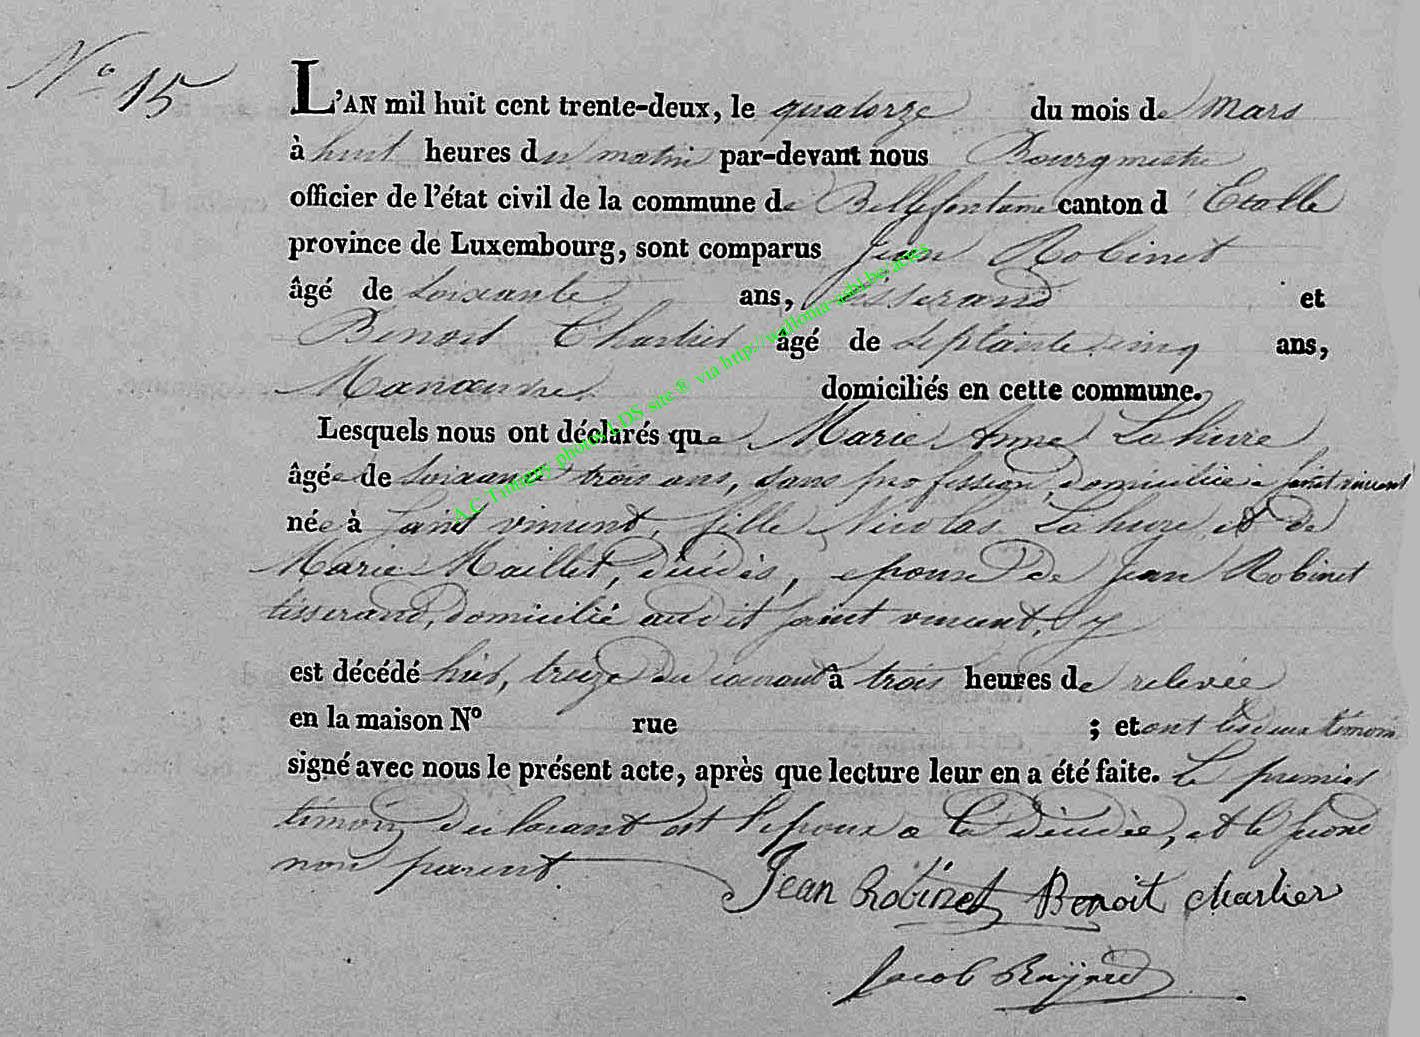 N° 15
L'AN mil huit cent trente-deux, le quatorze du mois de mars
à huit heures du matin par-devant nous Bourgmestre
officier de l'état civil de la commune de Bellefontaine canton d'Etalle
province de Luxembourg, sont comparus Jean Robinet
âgé de soixante ans, tisserand et
Benoit Charlier âgé de septante cinq ans,
Manœuvre domiciliés en cette commune.
Lesquels nous ont déclarés que Marie Anne Lahure
âgée de soixante trois ans, sans profession, domiciliée à saint vincent
née à saint vincent, fille Nicolas Lahure et de
Marie Maillet, décédés, epouse de Jean Robinet
tisserand, domicilié audit saint vincent, y
est décédé hier, treize du courant à trois heures de relevée
en la maison N° rue ; et ont les deux témoins
signé avec nous le présent acte, après que lecture leur en a été faite. Le premier
témoin declarant est l'epoux a la décédée, et le second
non parent.
Jean Robinet Benoit charlier
Jacob
A.C Tintigny photos LDS site ® via http://wallonia-asbl.be/actes